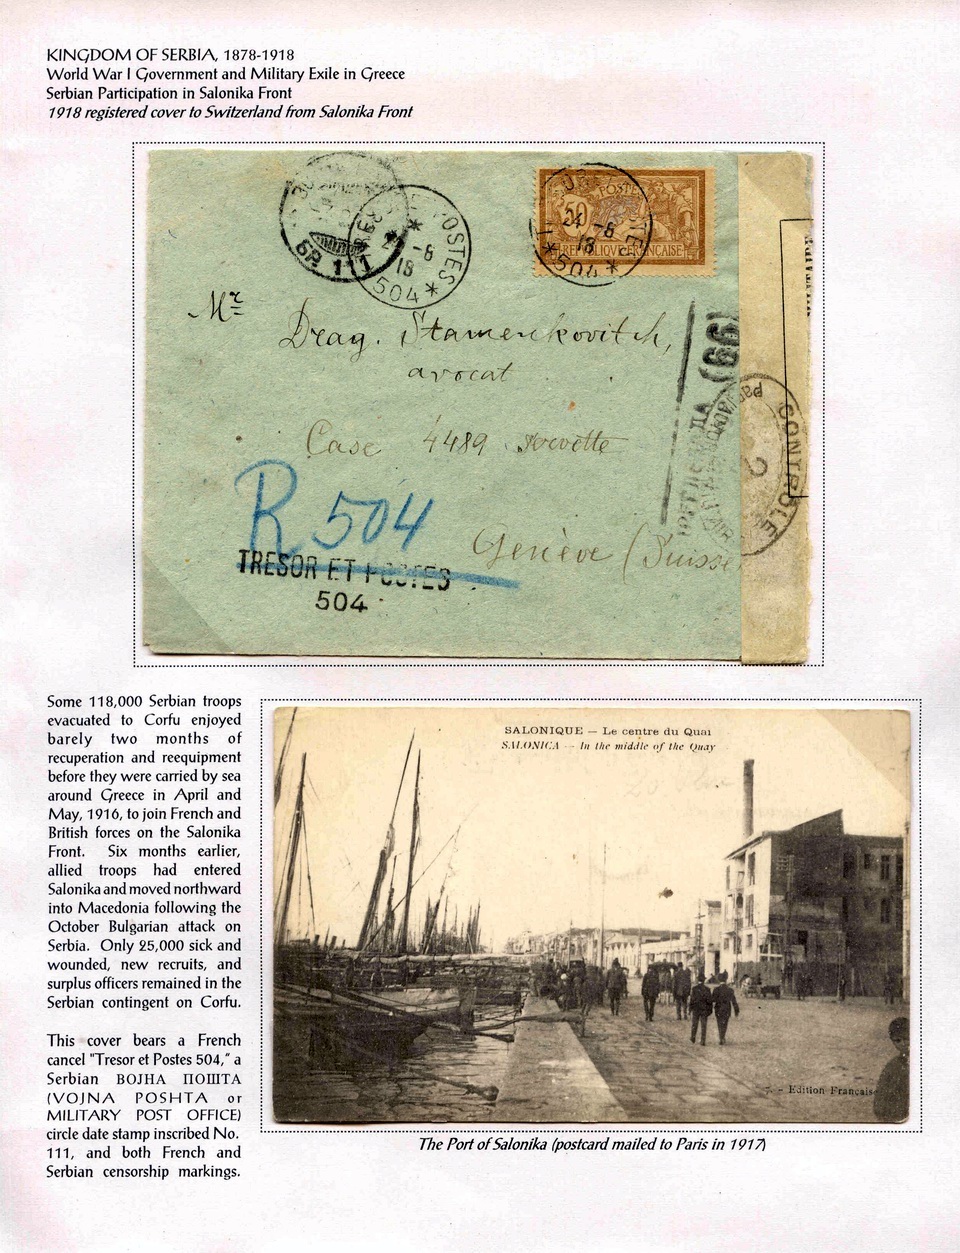 KINGDOM OF SERBIA, 1878-1918
World War I Government and Military Exile in Greece
Serbian Participation in Salonika Front
1918 registered cover to Switzerland from Salonika Front
БР. 111
POSTES
24 -8
18
* 504 *
POSTES
50
24 -8
18
REPUBLIQUE FRANÇAISE
* 504 *
Mr
Drag. Stamenkovitch,
avocat
Case 4489
(99)
CONTROLE
2
R 504
Genève (Suisse
TRESOR ET POSTES
504
Some 118,000 Serbian troops
evacuated to Corfu enjoyed
barely two months of
recuperation and reequipment
before they were carried by sea
around Greece in April and
May, 1916, to join French and
British forces on the Salonika
Front. Six months earlier,
allied troops had entered
Salonika and moved northward
into Macedonia following the
October Bulgarian attack on
Serbia. Only 25,000 sick and
wounded, new recruits, and
surplus officers remained in the
Serbian contingent on Corfu.
This cover bears a French
cancel "Tresor et Postes 504," a
Serbian ВОЈНА ПОШТА
(VOJNA POSHTA or
MILITARY POST OFFICE)
circle date stamp inscribed No.
111, and both French and
Serbian censorship markings.
SALONIQUE — Le centre du Quai
SALONICA — In the middle of the Quay
Edition Française
The Port of Salonika (postcard mailed to Paris in 1917)